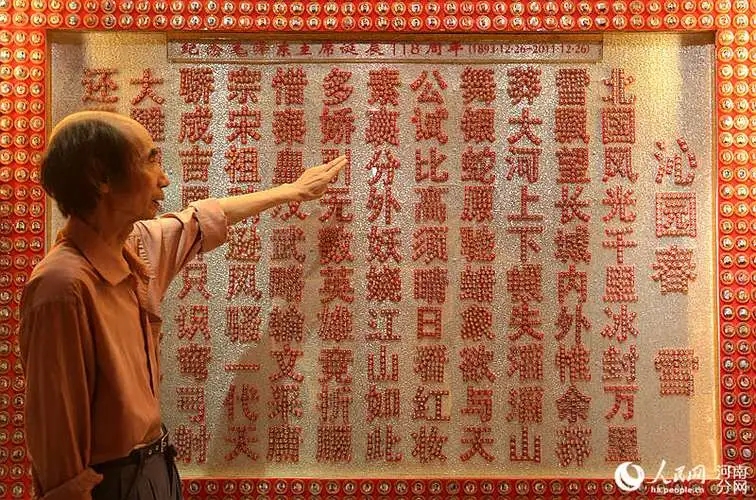 纪念毛泽东主席诞辰118周年(1893·12·26—2011·12·26)
沁园春 雪
北国风光千里冰封万里
雪飘望长城内外惟余莽
莽大河上下顿失滔滔山
舞银蛇原驰蜡象欲与天
公试比高须晴日看红妆
素裹分外妖娆江山如此
多娇引无数英雄竞折腰
惜秦皇汉武略输文采唐
宗宋祖稍逊风骚一代天
骄成吉思只识弯弓射
大雕
还
人民网 河南分网